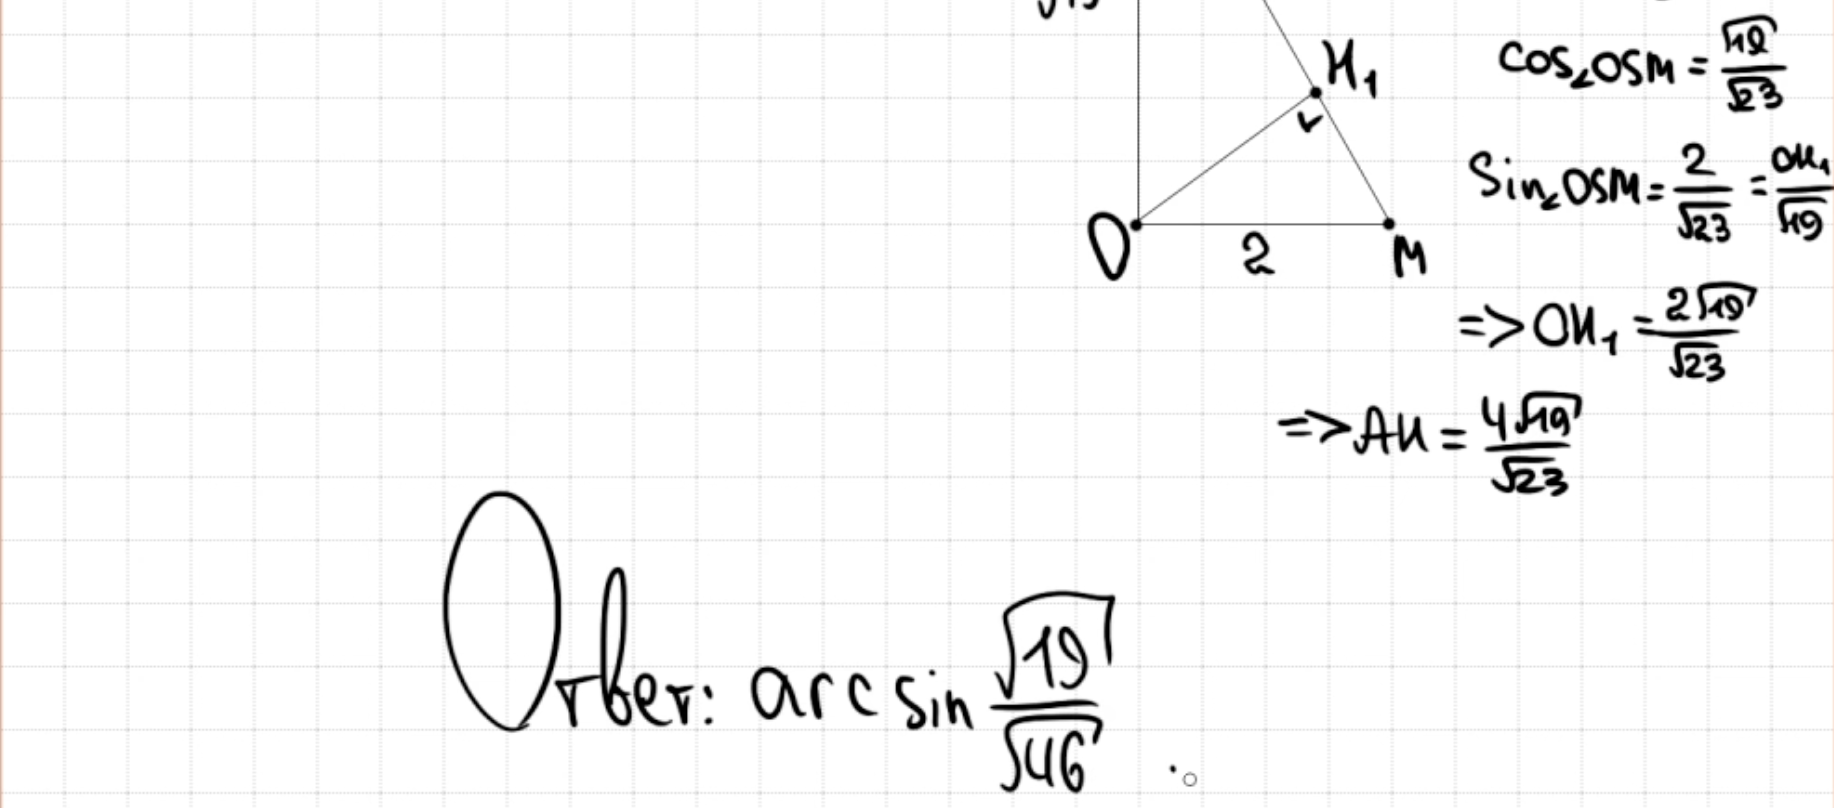 √19
H₁
cos∠OSM = √19/√23
sin∠OSM = 2/√23 = OH₁/√19
O 2 M
=> OH₁ = 2√19/√23
=> AH = 4√19/√23
Ответ: arcsin √19/√46 .